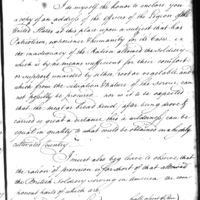 I do myself the honor to enclose you
a copy of an address of the Officers of the Legion of the
United States at this place upon a subject that has
Patriotism, as well as Humanity for its base — i.e.
the inadequacy of the Ration allowed the Soldiery
which is by no means sufficient for their comfort
or support unaided by other, root or vegetable and
which from the situation & nature of the service can
not possibly be procured nor is it to be expected
that the meat or bread kind, after being drove &
carried so great a distance, thro' a wilderness can be
equal in quality to what could be obtained in a highly
cultivated Country.
I must also beg leave to observe, that
the ration of provisions is far short of that allowed
the British Soldiery serving in America the com
ponent parts of which are